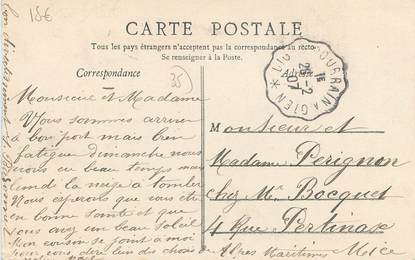 15€
CARTE POSTALE
Tous les pays étrangers n'acceptent pas la correspondance au recto
Se renseigner à la Poste.
Correspondance
Adresse
35
26-2
07
GIEN *
Monsieur et Madame
Nous sommes arrivés
à bon port mais bien
fatigué dimanche nous
avons eu beau temps mais
lundi la neige a tombée
Nous espérons que vous êtes
en bonne santé et que
vous avez un beau soleil
Mon cousin se joint à moi
pour vous dire bien des choses
Monsieur et
Madame Perignon
chez Mr Bocquet
4 Rue Pertinax
Alpes Maritimes Nice